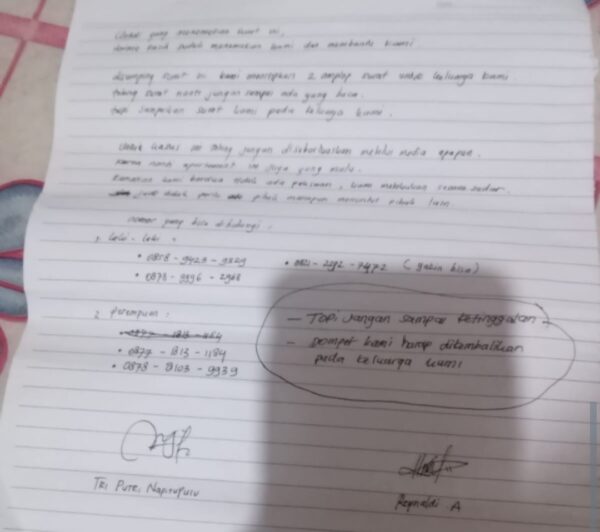 Untuk yang menemukan surat ini,
terima kasih sudah menemukan kami dan membantu kami.
disamping surat ini kami menitipkan 2 amplop surat untuk keluarga kami.
tolong surat nanti jangan sampai ada yang baca.
tapi sampaikan surat kami pada keluarga kami.
Untuk kasus ini tolong jangan disebarluaskan melalui media apapun.
karna nanti apartement ini juga yang malu.
kami berdua tidak ada paksaan, kami melakukan secara sadar.
tidak perlu pihak manapun menuntut pihak lain
nomor yang bisa dihubungi :
1. Laki - Laki :
• 0858 - 9423 - 9829
• 0821 - 2192 - 7472 (yakin bisa)
• 0878 - 9996 - 2968
2. perempuan :
• 0877 - 1313 - 1184
• 0878 - 8103 - 9939
— Topi jangan sampai ketinggalan
— dompet kami harap dikembalikan
pada keluarga kami
Tri Putri Napitupulu
Reynaldi A